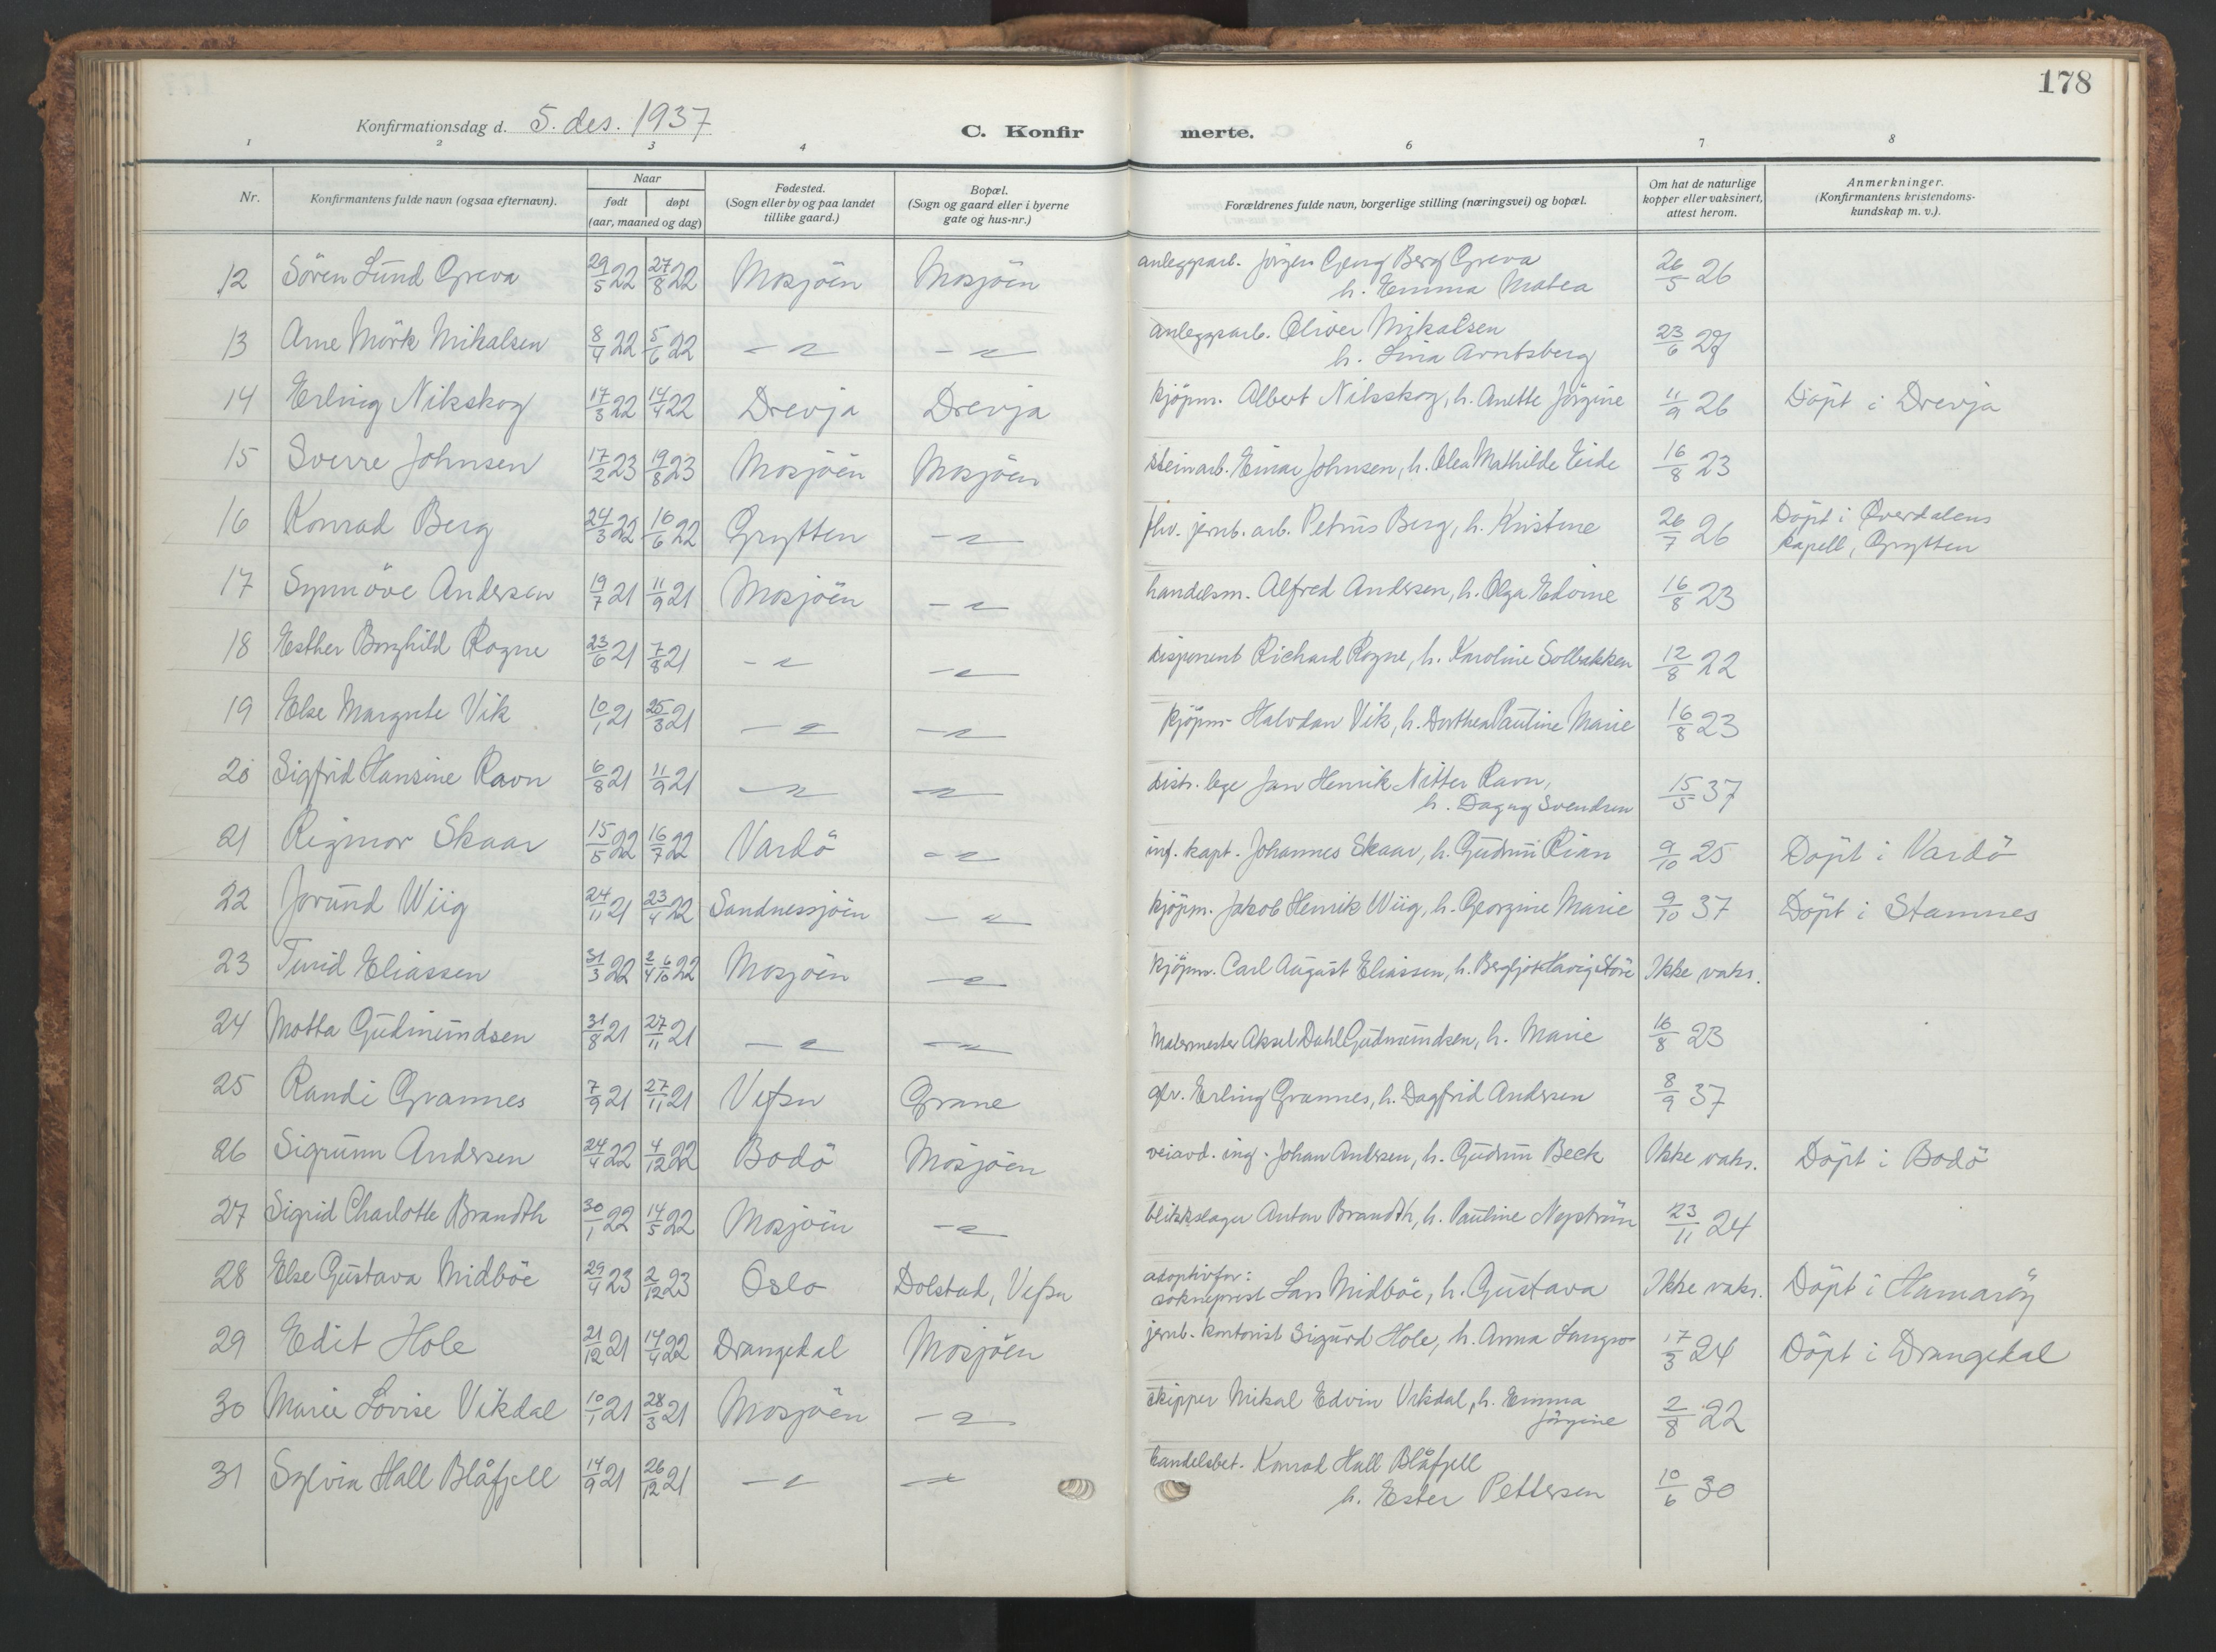 178
Konfirmationsdag d. 5. des. 1937
C. Konfirmerte.
1 2 3 4 6 7 8
Nr. Konfirmantens fulde navn (ogsaa efternavn). Naar født døpt (aar, maaned og dag) Fødested. (Sogn eller by og paa landet tillike gaard.) Bopæl. (Sogn og gaard eller i byerne gate og hus-nr.) Forældrenes fulde navn, borgerlige stilling (næringsvei) og bopæl. Om hat de naturlige kopper eller vaksinert, attest herom. Anmerkninger. (Konfirmantens kristendoms-kundskap m. v.).
12 Sören Lund Greva 29/5 22 27/8 22 Mosjöen Mosjöen anleggsarb. Jörgen Georg Berg Greva h. Emma Matea 26/5 26
13 Arne Mörk Mikalsen 8/4 22 5/6 22 — " — — " — anleggsarb. Oliver Mikalsen h. Lina Arntsberg 23/6 27
14 Erling Nilsskog 17/3 22 14/4 22 Drevja Drevja kjöpm. Albert Nilsskog, h. Anette Jörgine 11/9 26 Döpt i Drevja
15 Sverre Johnsen 17/2 23 19/8 23 Mosjöen Mosjöen steinarb. Einar Johnsen, h. Olea Mathilde Eide 16/8 23
16 Konrad Berg 24/3 22 16/6 22 Grytten — " — fhv. jernb. arb. Petrus Berg, h. Kristine 26/7 26 Döpt i Øverdalens kapell, Grytten
17 Synnöve Andersen 19/7 21 11/9 21 Mosjöen — " — handelsm. Alfred Andersen, h. Olga Edvine 16/8 23
18 Esther Borghild Rogne 23/6 21 7/8 21 — " — — " — disponent Richard Rogne, h. Karoline Solbakken 12/8 22
19 Else Margrete Vik 10/1 21 25/3 21 — " — — " — kjöpm. Halvdan Vik, h. Dorthea Pauline Marie 16/8 23
20 Sigfrid Hansine Ravn 6/8 21 11/9 21 — " — — " — distr. lege Jan Henrik Nitter Ravn, h. Dagny Svendsen 15/5 37
21 Rigmor Skaar 15/5 22 16/7 22 Vardö — " — inf. kapt. Johannes Skaar, h. Gudrun Rian 9/10 25 Döpt i Vardö
22 Jorund Wiig 24/11 21 23/4 22 Sandnessjöen — " — kjöpm. Jakob Henrik Wiig, h. Georgine Marie 9/10 37 Döpt i Stamnes
23 Turid Eliassen 31/3 22 2/4 6/6 22 Mosjöen — " — kjöpm. Carl August Eliassen, h. Bergljot Havig Störe Ikke vaks.
24 Motta Gudmundsen 31/8 21 27/11 21 — " — — " — Malermester Aksel Dahl Gudmundsen, h. Marie 16/8 23
25 Randi Grannes 7/9 21 27/11 21 Vefsn Grane gbr. Erling Grannes, h. Dagfrid Andersen 8/9 37
26 Sigrunn Andersen 24/4 22 4/12 22 Bodö Mosjöen veiavd. ing. Johan Andersen, h. Gudrun Beck Ikke vaks. Döpt i Bodö
27 Sigrid Charlotte Brandth 30/1 22 14/5 22 Mosjöen — " — blikkslager Anton Brandth, h. Pauline Nyström 23/11 24
28 Else Gustava Midböe 29/4 23 2/12 23 Oslo Dolstad, Vefsn adoptivfor: sokneprest Lars Midböe, h. Gustava Ikke vaks. Döpt i Hamaröy
29 Edit Hole 21/12 21 14/4 22 Drangedal Mosjöen jernb. kontorist Sigurd Hole, h. Anna 17/3 24 Döpt i Drangedal
30 Marie Lovise Vikdal 10/1 21 28/3 21 Mosjöen — " — skipper Mikal Edvin Vikdal, h. Emma Jörgine 2/8 22
31 Sylvia Hall Blåfjell 14/9 21 26/12 21 — " — — " — handelsbet. Konrad Hall Blåfjell h. Ester Pettersen 10/6 30